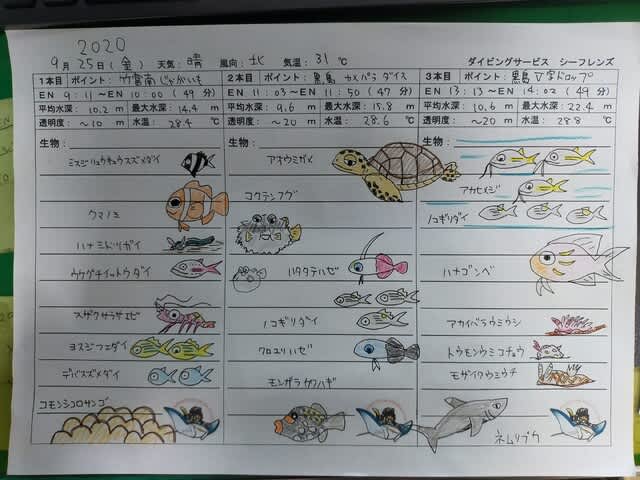 2020
9月25日(金) 天気:晴 風向:北 気温:31℃ ダイビングサービス シーフレンズ
1本目 ポイント:竹富南じゃがいも
EN 9:11～EN 10:00 (49分)
平均水深:10.2m 最大水深:14.4m
透明度:～10m 水温:28.4℃
生物:
ミスジリュウキュウスズメダイ
クマノミ
ハナミドリガイ
ウケグチイットウダイ
スザクサラサエビ
ヨスジフエダイ
デバスズメダイ
コモンシコロサンゴ
2本目 ポイント:黒島 カメパラダイス
EN 11:03～EN 11:50 (47分)
平均水深:9.6m 最大水深:15.8m
透明度:～20m 水温:28.6℃
生物:
アオウミガメ
コクテンフグ
ハタタテハゼ
ノコギリダイ
クロユリハゼ
モンガラカワハギ
3本目 ポイント:黒島V字ドロップ
EN 13:13～EN 14:02 (49分)
平均水深:10.6m 最大水深:22.4m
透明度:～20m 水温:28.8℃
生物:
アカヒメジ
ノコギリダイ
ハナゴンベ
アカイバラウミウシ
トウモンウミコチョウ
モザイクウミウチ
ネムリブカ